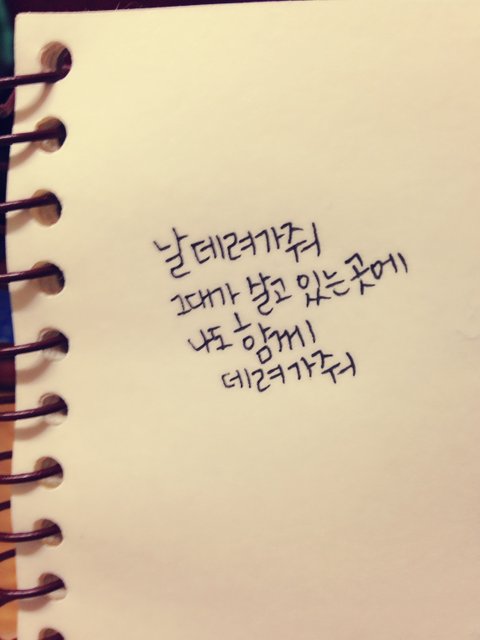 날 데려가줘
그대가 살고 있는 곳에
나도 함께
데려가줘